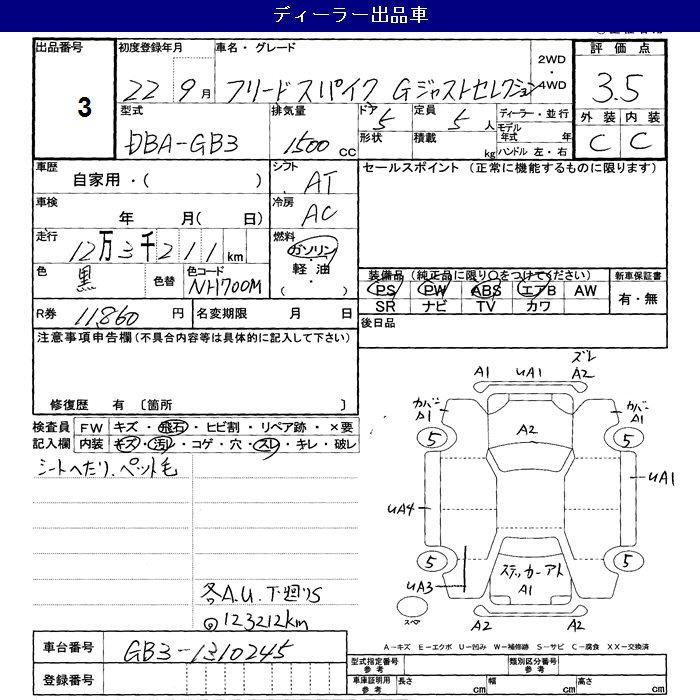 ディーラー出品車
出品番号 3
初度登録年月 22 9月
車名・グレード フリードスパイク Gジャストセレクション
2WD・4WD
評価点 3.5
外装 内装
C C
型式 DBA-GB3
排気量 1500 cc
ドア 5 形状
定員 5人 積載 kg
ディーラー・並行
モデル年式 年
ハンドル 左・右
車歴 自家用・( )
シフト AT
車検 年 月( 日)
冷房 AC
走行 12万3千211km
燃料 ガソリン・軽油・( )
色 黒 色替
色コード NH700M
セールスポイント (正常に機能するものに限ります)
装備品 (純正品に限り○をつけてください)
PS PW ABS エアB AW
SR ナビ TV カワ
新車保証書 有・無
R券 11,860円
名変期限 月 日
後日品
注意事項申告欄(不具合内容等は具体的に記入して下さい)
修復歴 有 〔箇所 〕
検査員記入欄
FW キズ・飛石・ヒビ割・リペア跡・×要
内装 キズ・汚レ・コゲ・穴・スレ・キレ・破レ
シートへたり、ペット毛
各A.U.下廻りS
◎123212km
ズレ
A1 UA1 A2
カバー A1
カバー A1
A2
5 5
UA4
UA1
5 5
UA3
ステッカーアト A1
スペア
A2 A2
A-キズ E-エクボ U-凹み W-補修跡 S-サビ C-腐食 XX-交換済
車台番号 GB3-1310245
登録番号
型式指定番号 参考
類別区分番号 参考
車庫証明用 参考 長さ cm 幅 cm 高さ cm